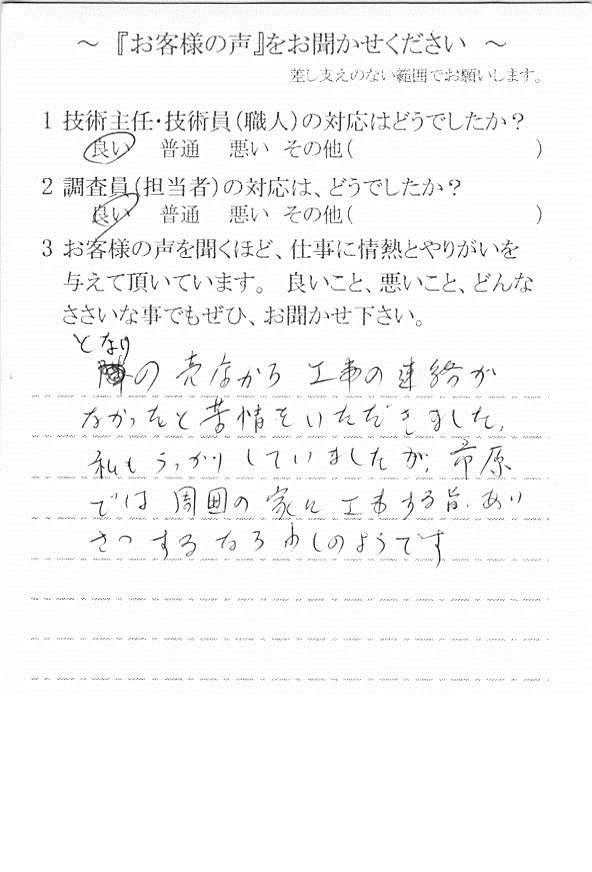 ～ 『お客様の声』をお聞かせください ～
差し支えのない範囲でお願いします。
1 技術主任・技術員(職人)の対応はどうでしたか?
良い 普通 悪い その他( )
2 調査員(担当者)の対応は、どうでしたか?
良い 普通 悪い その他( )
3 お客様の声を聞くほど、仕事に情熱とやりがいを
与えて頂いています。 良いこと、悪いこと、どんな
ささいな事でもぜひ、お聞かせ下さい。
となり
の売店から工事の連絡が
なかったと苦情をいただきました。
私もうっかりしていましたが、市原
では周囲の家に工事する旨、あい
さつするならわしのようです